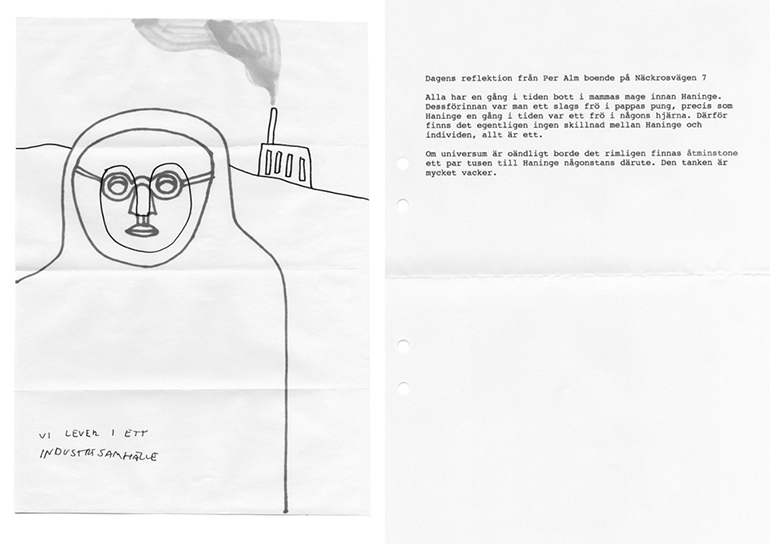 VI LEVER I ETT
INDUSTRISAMHÄLLE
Dagens reflektion från Per Alm boende på Näckrosvägen 7
Alla har en gång i tiden bott i mammas mage innan Haninge.
Dessförinnan var man ett slags frö i pappas pung, precis som
Haninge en gång i tiden var ett frö i någons hjärna. Därför
finns det egentligen ingen skillnad mellan Haninge och
individen, allt är ett.
Om universum är oändligt borde det rimligen finnas åtminstone
ett par tusen till Haninge någonstans därute. Den tanken är
mycket vacker.